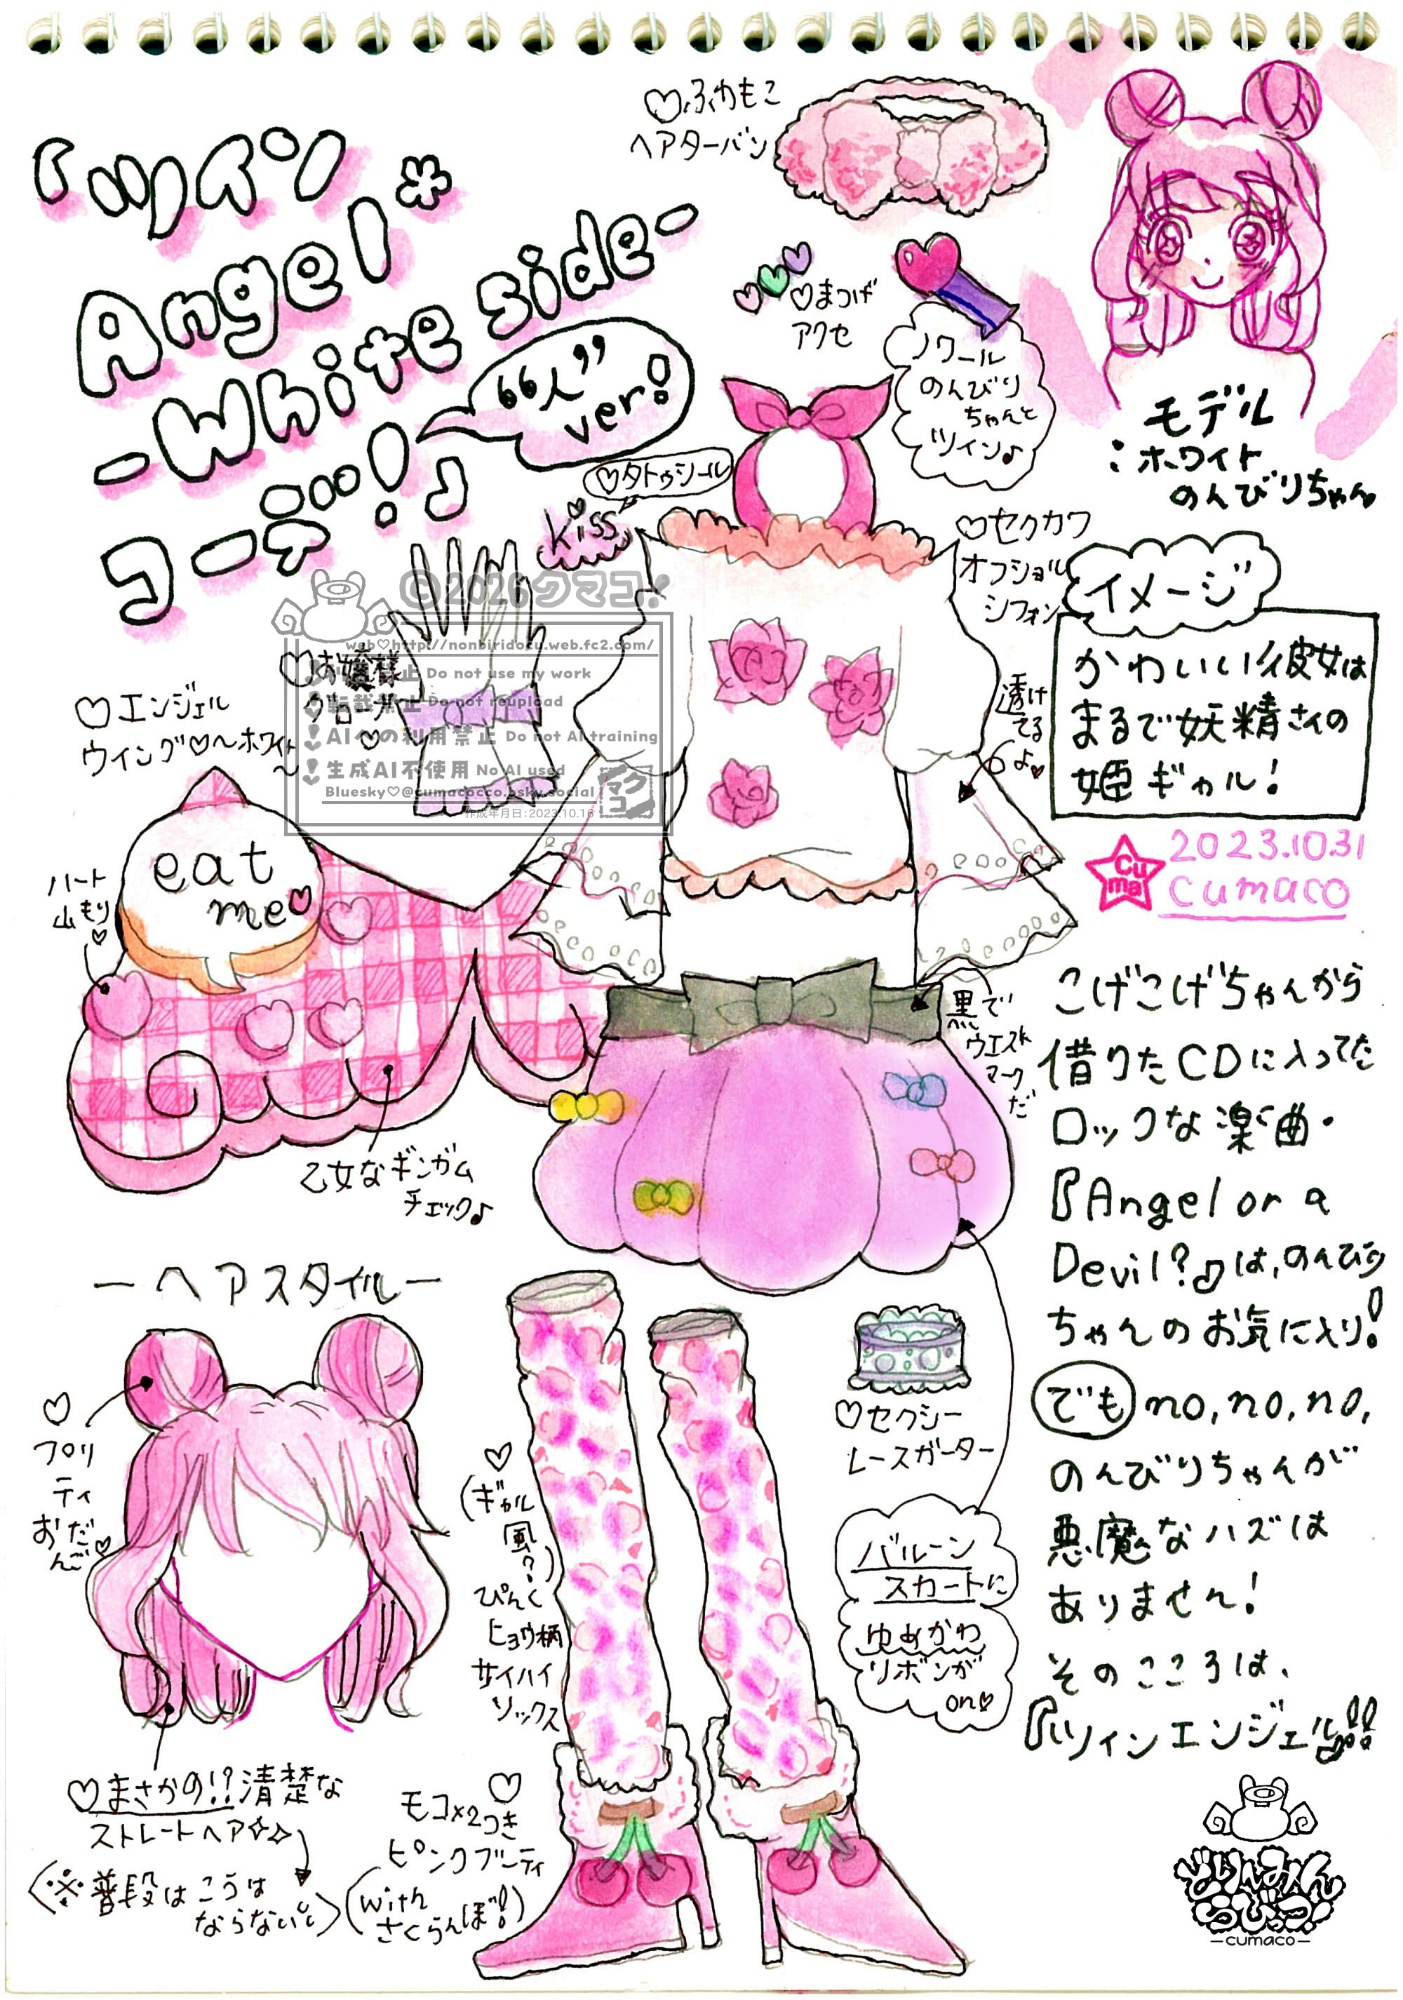 「ツイン
Angel*
-White side-
コーデ!♪
“人”
ver!
♡ふわもこ
ヘアターバン
♡まつげ
アクセ
ノワール
のんびり
ちゃんと
ツイン♪
モデル
:ホワイト
のんびりちゃん
♡タトゥシール
Kiss
♡セクカワ
オフショル
シフォン
透け
てる
よ♥
イメージ
かわいい彼女は
まるで妖精さんの
姫ギャル!
2023.10.31
cumaco
Cu
ma
©2026クマコ!
web♡http://nonbiridocu.web.fc2.com/
Do not use my work
転載禁止 Do not reupload
AIへの利用禁止 Do not AI training
生成AI不使用 No AI used
Bluesky♡@cumacocco.bsky.social
作成年月日:2023.10.16
マク
コ
♡お嬢様
グローブ
♡
♡エンジェル
ウイング♡〜ホワイト
〜
eat
me♥
ハート
山もり
♡
乙女なギンガム
チェック♪
黒で
ウエスト
マーク
だ
こげこげちゃんから
借りたCDに入ってた
ロックな楽曲・
『Angel or a
Devil?♪』は、のんびり
ちゃんのお気に入り!
でも no, no, no,
のんびりちゃんが
悪魔なハズは
ありません!
そのこころは、
『ツインエンジェル♪』!!
-ヘアスタイル-
♡
プリ
ティ
おだ
んご♡
♡まさかの!?清楚な
ストレートヘア✧✧
(※普段はこうは
ならないし)
♡
(ギャル
風?)
ぴんく
ヒョウ柄
サイハイ
ソックス
♡
モコ×2つき
ピンクブーティ
(with
さくらんぼ!)
♡セクシー
レースガーター
バルーン
スカートに
ゆめかわ
リボンが
on♡
どりーみん
らびっつ!
-cumaco-